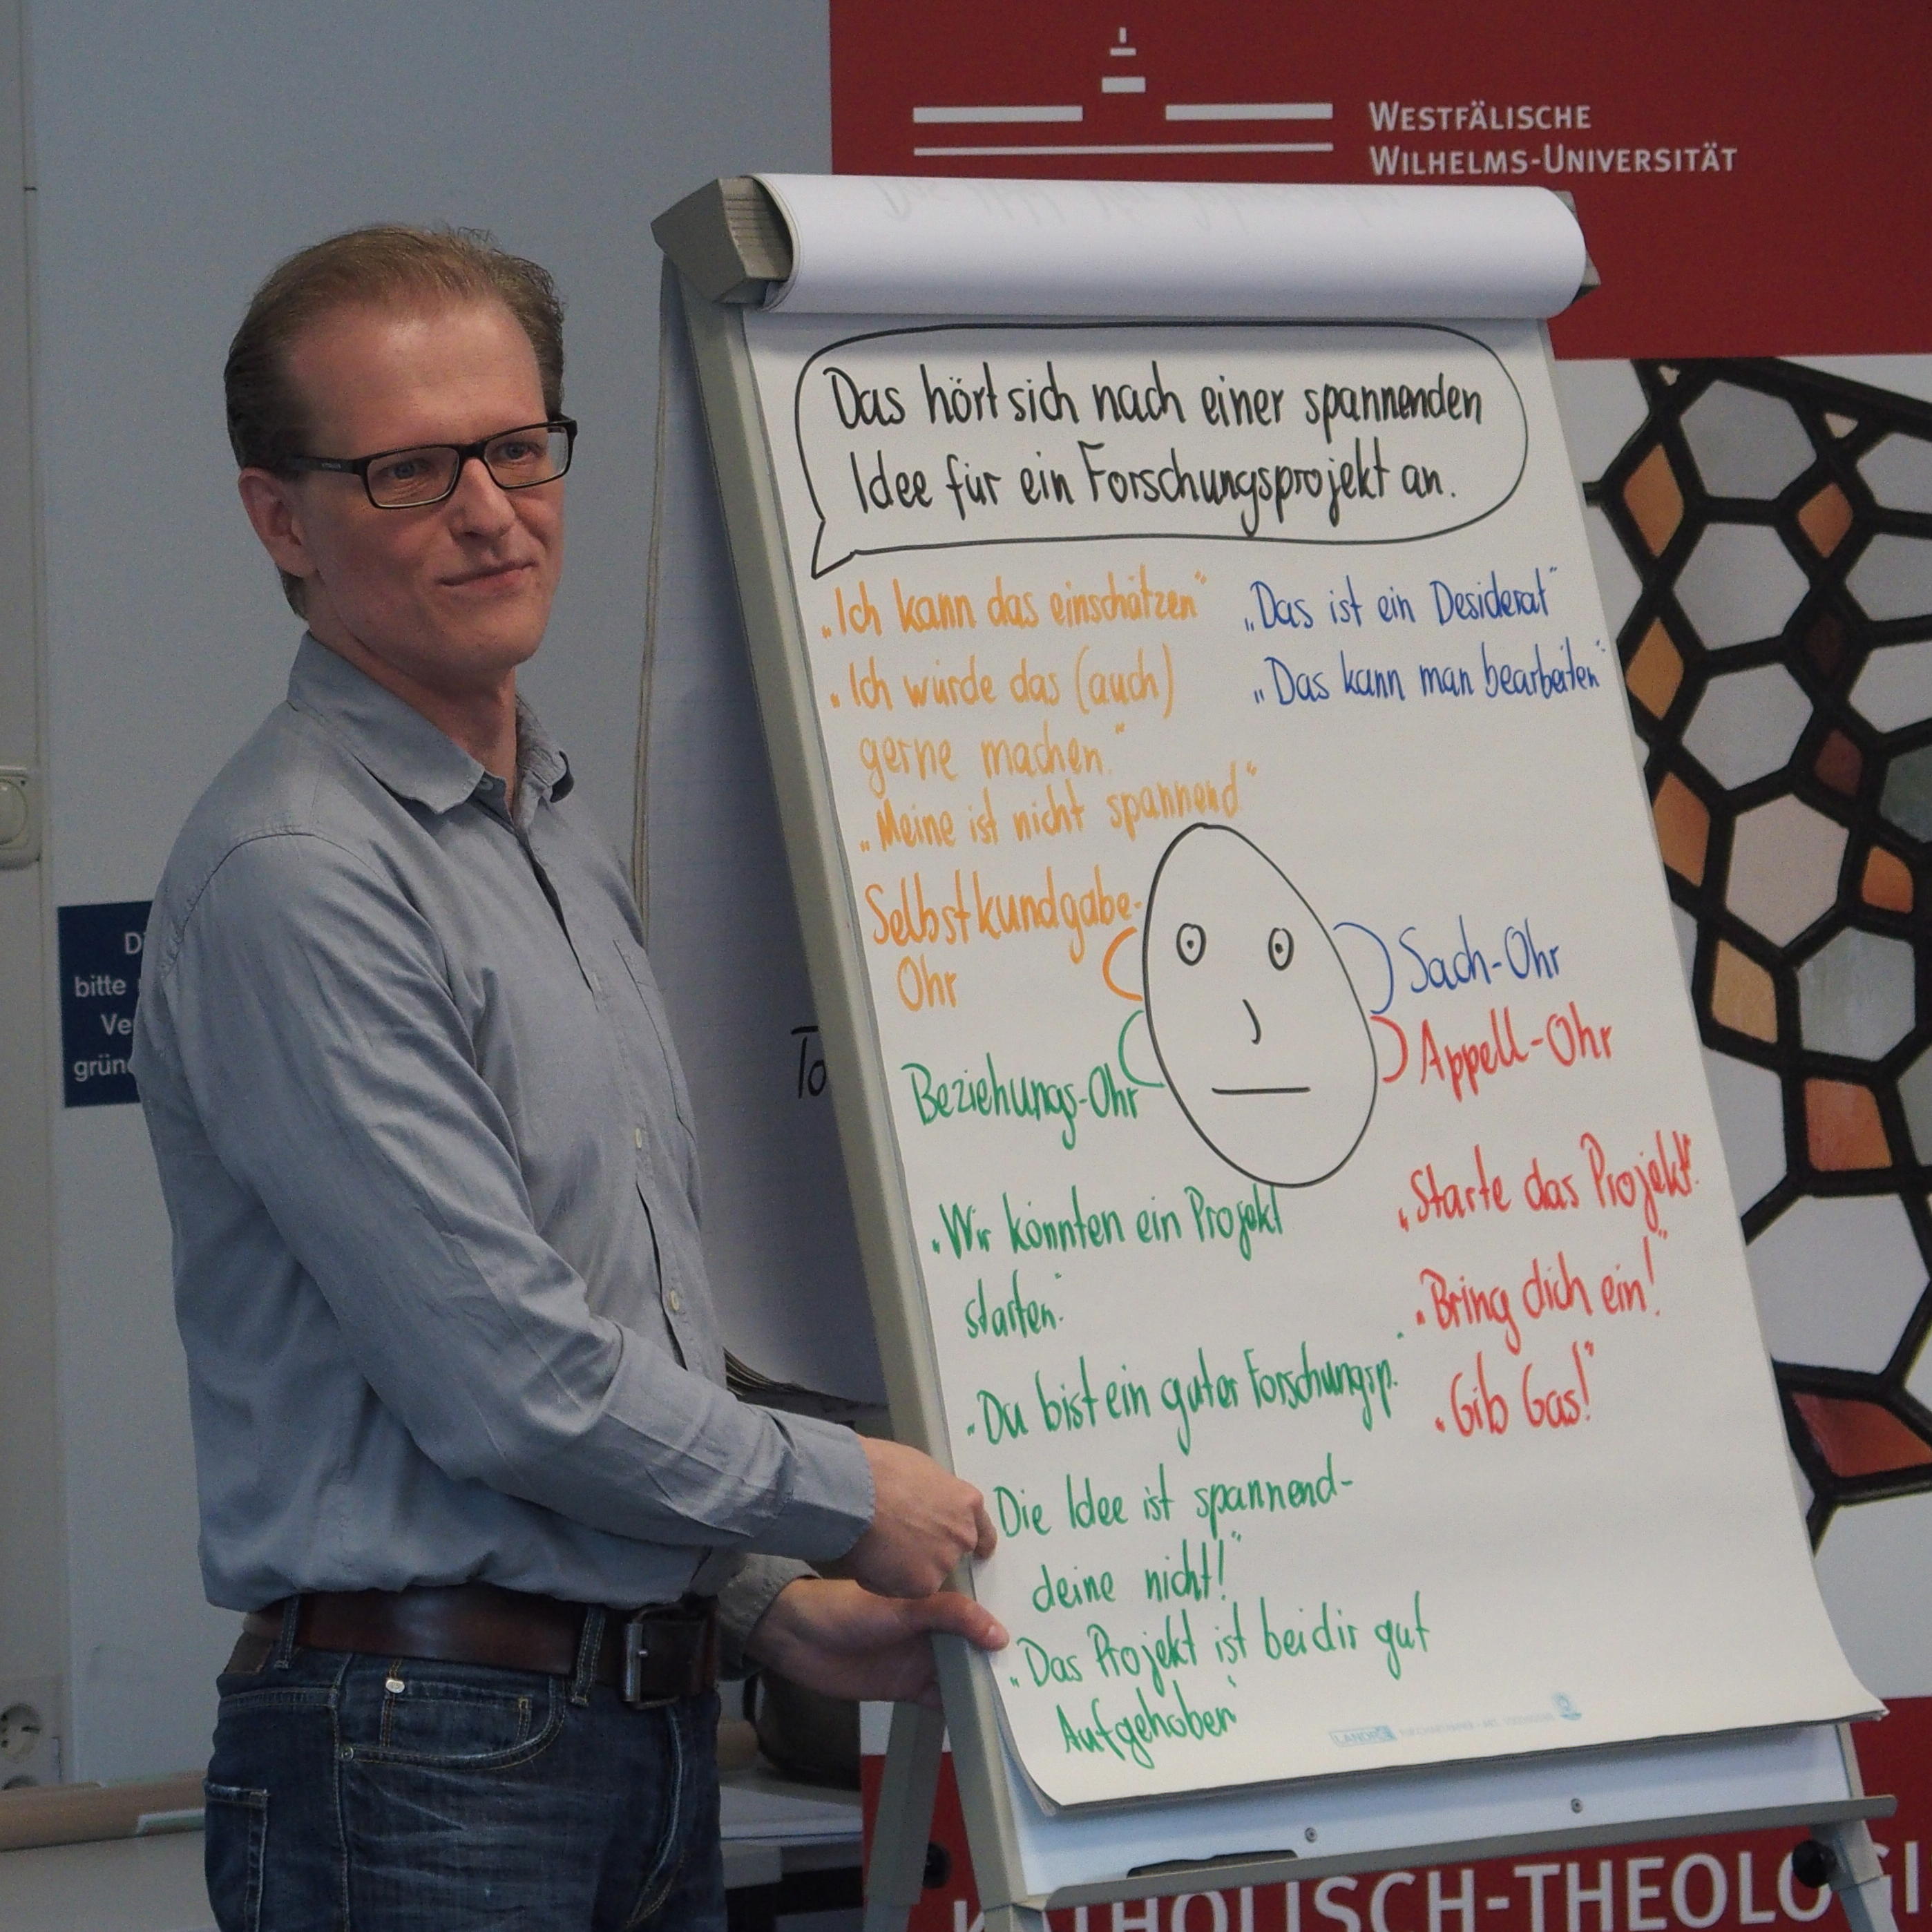 WESTFÄLISCHE
WILHELMS-UNIVERSITÄT
Das hört sich nach einer spannenden
Idee für ein Forschungsprojekt an.
„Ich kann das einschätzen"
„Ich würde das (auch)
gerne machen."
„Meine ist nicht spannend"
„Das ist ein Desiderat"
„Das kann man bearbeiten"
Selbstkundgabe-
Ohr
Sach-Ohr
Appell-Ohr
Beziehungs-Ohr
„Wir könnten ein Projekt
starten."
„Du bist ein guter Forschungsp."
„Die Idee ist spannend-
deine nicht!"
„Das Projekt ist bei dir gut
Aufgehoben"
„Starte das Projekt!"
„Bring dich ein!"
„Gib Gas!"
bitte
To
LANDRÉ
KATHOLISCH-THEOLOGI